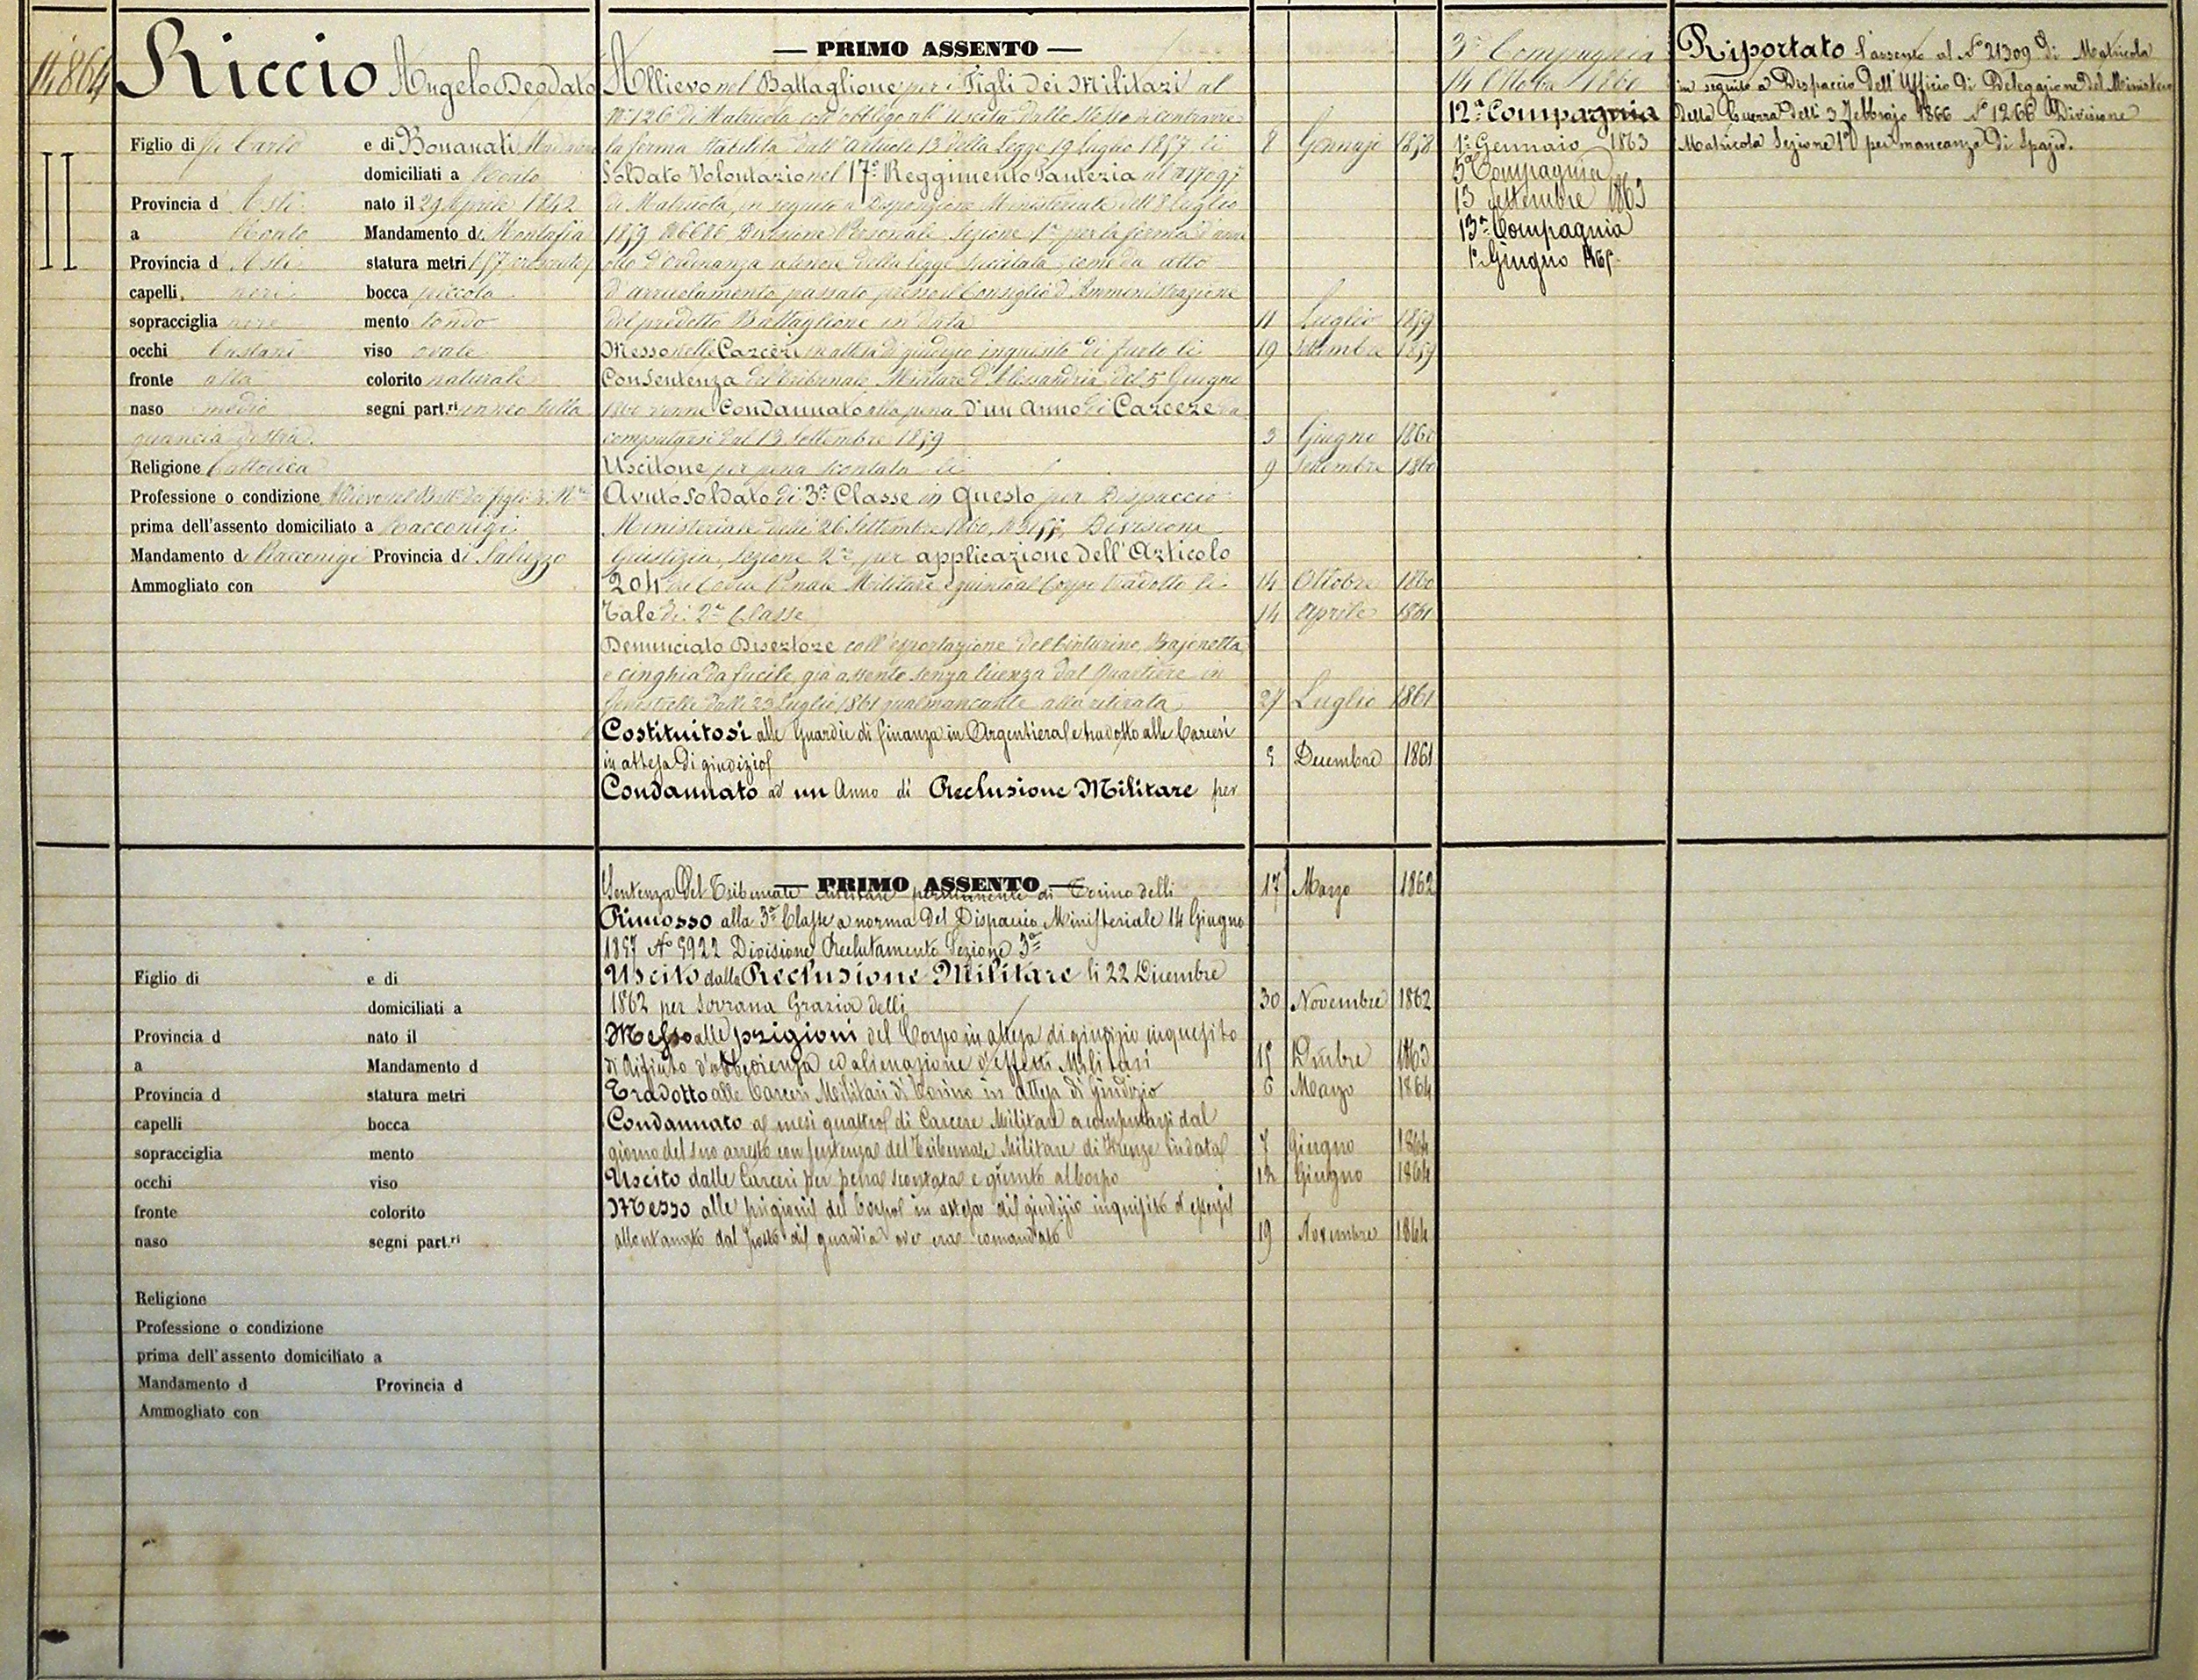 14864
Riccio Angelo Deodato
Figlio di fu Carlo e di Bonanati
domiciliati a Roato
Provincia d Asti nato il 29 Aprile 1842
a Roato Mandamento di Montafia
Provincia d Asti statura metri 1,57
capelli neri bocca piccola
sopracciglia nere mento tondo
occhi castani viso ovale
fronte alta colorito naturale
naso medio segni part.ri un neo sulla
guancia destra.
Religione Cattolica
Professione o condizione Allievo nel Batt.e dei figli di
prima dell'assento domiciliato a Racconigi
Mandamento di Racconigi Provincia di Saluzzo
Ammogliato con
— PRIMO ASSENTO —
Allievo nel Battaglione per i Figli dei Militari al
N.° 126 di Matricola coll'obbligo all'uscita dallo stesso di contrarre
la ferma stabilita dall'articolo 13 della Legge 19 luglio 1857 li 8 Gennajo 1858
Soldato Volontario nel 17° Reggimento Fanteria al
di Matricola, in seguito a Disposizione Ministeriale dell'8 luglio
1859 N 6686 Divisione Personale Sezione 1a per la ferma d'anni
otto d'ordinanza a tenore della legge succitata, come da atto
d'arruolamento passato presso il Consiglio d'Amministrazione
del predetto Battaglione in data 11 Luglio 1859
Messo nelle Carceri in attesa di giudizio inquisito di furto li 19 Settembre 1859
Con sentenza del tribunale Militare d'Alessandria del 5 Giugno
1860 venne Condannato alla pena d'un anno di Carcere da
computarsi dal 13 Settembre 1859 5 Giugno 1860
Uscitone per pena scontata li 9 Settembre 1860
Avuto Soldato di 3a Classe in Questo per Dispaccio
Ministeriale delli 26 Settembre 1860, Divisione
Giustizia, Sezione 2a per applicazione dell'Articolo
204 del Codice Penale Militare e giunto al Corpo tradotto li 14 Ottobre 1860
Tale di 2a Classe 14 Aprile 1861
Denunciato Disertore coll'esportazione del cinturino, Bajonetta,
e cinghia da fucile, già assento senza licenza dal Quartiere in
Fenestrelle dalli 23 Luglio 1861 qual mancante alla ritirata 27 Luglio 1861
Costituitosi alle Guardie di finanza in Argentiera e tradotto alle Carceri
in attesa di giudizio 5 Decembre 1861
Condannato ad un Anno di Reclusione Militare per
3a Compagnia
14 Ottobre 1860
12a Compagnia
1° Gennaio 1863
5a Compagnia
13 Settembre 1863
13a Compagnia
1° Giugno 1865
Riportato l'assento al N° 21309 di Matricola
in seguito a Dispaccio dell'Uffizio di Delegazione del Ministero
della Guerra delli 3 Febbrajo 1866 N° 1266 Divisione
Matricola Sezione 1a per mancanza di spazio.
— PRIMO ASSENTO —
Sentenza del Tribunale Militare permanente di Torino delli 17 Marzo 1862
Rimosso alla 3a Classe a norma del Dispaccio Ministeriale 14 Giugno
1857 N° 5922 Divisione Reclutamento Sezione 3a
Uscito dalla Reclusione Militare li 22 Dicembre
1862 per Sovrana Grazia delli 30 Novembre 1862
Messo alle prigioni del Corpo in attesa di giudizio inquisito
di rifiuto d'obbedienza ed alienazione d'effetti Militari 15 1863
Tradotto alle Carceri Militari di Torino in attesa di Giudizio 6 Marzo 1864
Condannato a mesi quattro di Carcere Militare a computarsi dal
giorno del suo arresto con sentenza del Tribunale Militare di Firenze in data 7 Giugno 1864
Uscito dalle Carceri per pena scontata e giunto al Corpo 12 Giugno 1864
Messo alle prigioni del Corpo in attesa di giudizio inquisito d'essersi
allontanato dal posto di guardia ove era comandato 19 Novembre 1864
Figlio di e di
domiciliati a
Provincia d nato il
a Mandamento d
Provincia d statura metri
capelli bocca
sopracciglia mento
occhi viso
fronte colorito
naso segni part.ri
Religione
Professione o condizione
prima dell'assento domiciliato a
Mandamento d Provincia d
Ammogliato con